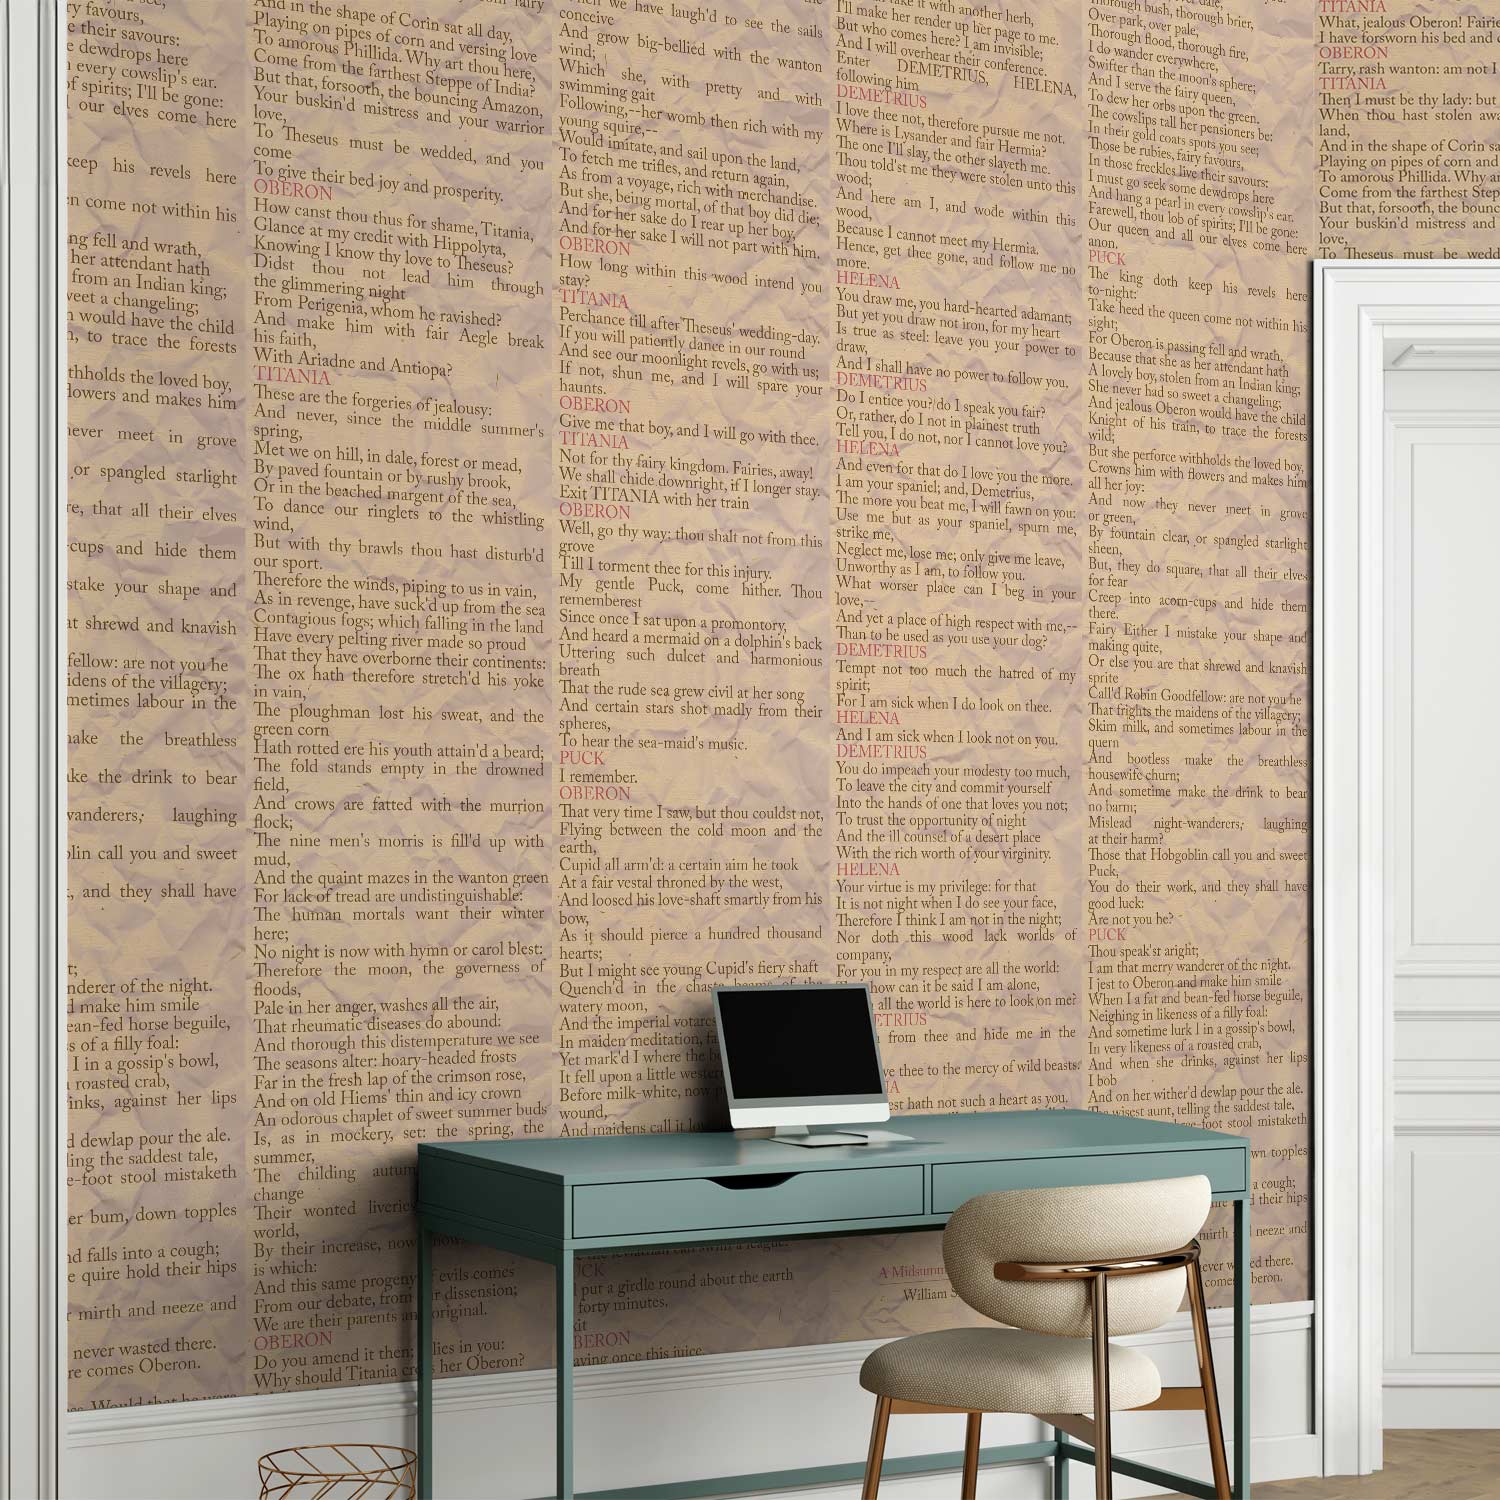 ry favours,
e their savours:
e dewdrops here
n every cowslip's ear.
of spirits; I'll be gone:
l our elves come here
keep his revels here
en come not within his
ing fell and wrath,
her attendant hath
from an Indian king;
weet a changeling;
n would have the child
n, to trace the forests
thholds the loved boy,
lowers and makes him
never meet in grove
or spangled starlight
re, that all their elves
-cups and hide them
stake your shape and
at shrewd and knavish
fellow: are not you he
idens of the villagery;
metimes labour in the
ake the breathless
ke the drink to bear
wanderers, laughing
blin call you and sweet
k, and they shall have
t;
nderer of the night.
d make him smile
ean-fed horse beguile,
s of a filly foal:
I in a gossip's bowl,
roasted crab,
inks, against her lips
d dewlap pour the ale.
ling the saddest tale,
e-foot stool mistaketh
er bum, down topples
nd falls into a cough;
e quire hold their hips
r mirth and neeze and
never wasted there.
re comes Oberon.
es. Would that he were
And in the shape of Corin sat all day,
Playing on pipes of corn and versing love
To amorous Phillida. Why art thou here,
Come from the farthest Steppe of India?
But that, forsooth, the bouncing Amazon,
Your buskin'd mistress and your warrior
love,
To Theseus must be wedded, and you
come
To give their bed joy and prosperity.
OBERON
How canst thou thus for shame, Titania,
Glance at my credit with Hippolyta,
Knowing I know thy love to Theseus?
Didst thou not lead him through
the glimmering night
From Perigenia, whom he ravished?
And make him with fair Aegle break
his faith,
With Ariadne and Antiopa?
TITANIA
These are the forgeries of jealousy:
And never, since the middle summer's
spring,
Met we on hill, in dale, forest or mead,
By paved fountain or by rushy brook,
Or in the beached margent of the sea,
To dance our ringlets to the whistling
wind,
But with thy brawls thou hast disturb'd
our sport.
Therefore the winds, piping to us in vain,
As in revenge, have suck'd up from the sea
Contagious fogs; which falling in the land
Have every pelting river made so proud
That they have overborne their continents:
The ox hath therefore stretch'd his yoke
in vain,
The ploughman lost his sweat, and the
green corn
Hath rotted ere his youth attain'd a beard;
The fold stands empty in the drowned
field,
And crows are fatted with the murrion
flock;
The nine men's morris is fill'd up with
mud,
And the quaint mazes in the wanton green
For lack of tread are undistinguishable:
The human mortals want their winter
here;
No night is now with hymn or carol blest:
Therefore the moon, the governess of
floods,
Pale in her anger, washes all the air,
That rheumatic diseases do abound:
And thorough this distemperature we see
The seasons alter: hoary-headed frosts
Far in the fresh lap of the crimson rose,
And on old Hiems' thin and icy crown
An odorous chaplet of sweet summer buds
Is, as in mockery, set: the spring, the
summer,
The childing autum
change
Their wonted liverie
world,
By their increase, now
is which:
And this same progeny f evils comes
From our debate, from r dissension;
We are their parents an original.
OBERON
Do you amend it then; lies in you:
Why should Titania cro her Oberon?
When we have laugh'd to see the sails
conceive
And grow big-bellied with the wanton
wind;
Which she, with pretty and with
swimming gait
Following,--her womb then rich with my
young squire,--
Would imitate, and sail upon the land,
To fetch me trifles, and return again,
As from a voyage, rich with merchandise.
But she, being mortal, of that boy did die;
And for her sake do I rear up her boy,
And for her sake I will not part with him.
OBERON
How long within this wood intend you
stay?
TITANIA
Perchance till after Theseus' wedding-day.
If you will patiently dance in our round
And see our moonlight revels, go with us;
If not, shun me, and I will spare your
haunts.
OBERON
Give me that boy, and I will go with thee.
TITANIA
Not for thy fairy kingdom. Fairies, away!
We shall chide downright, if I longer stay.
Exit TITANIA with her train
OBERON
Well, go thy way: thou shalt not from this
grove
Till I torment thee for this injury.
My gentle Puck, come hither. Thou
rememberest
Since once I sat upon a promontory,
And heard a mermaid on a dolphin's back
Uttering such dulcet and harmonious
breath
That the rude sea grew civil at her song
And certain stars shot madly from their
spheres,
To hear the sea-maid's music.
PUCK
I remember.
OBERON
That very time I saw, but thou couldst not,
Flying between the cold moon and the
earth,
Cupid all arm'd: a certain aim he took
At a fair vestal throned by the west,
And loosed his love-shaft smartly from his
bow,
As it should pierce a hundred thousand
hearts;
But I might see young Cupid's fiery shaft
Quench'd in the chaste beams of the
watery moon,
And the imperial votares
In maiden meditation, fa
Yet mark'd I where the b
It fell upon a little weste
Before milk-white, now p
wound,
And maidens call it lo
the leviathan can swim a league.
UCK
put a girdle round about the earth
forty minutes.
xit
BERON
aving once this juice,
take it with another herb,
I'll make her render up her page to me.
But who comes here? I am invisible;
And I will overhear their conference.
Enter DEMETRIUS, HELENA,
following him
DEMETRIUS
I love thee not, therefore pursue me not.
Where is Lysander and fair Hermia?
The one I'll slay, the other slayeth me.
Thou told'st me they were stolen unto this
wood;
And here am I, and wode within this
wood,
Because I cannot meet my Hermia.
Hence, get thee gone, and follow me no
more.
HELENA
You draw me, you hard-hearted adamant;
But yet you draw not iron, for my heart
Is true as steel: leave you your power to
draw,
And I shall have no power to follow you.
DEMETRIUS
Do I entice you? do I speak you fair?
Or, rather, do I not in plainest truth
Tell you, I do not, nor I cannot love you?
HELENA
And even for that do I love you the more.
I am your spaniel; and, Demetrius,
The more you beat me, I will fawn on you:
Use me but as your spaniel, spurn me,
strike me,
Neglect me, lose me; only give me leave,
Unworthy as I am, to follow you.
What worser place can I beg in your
love,--
And yet a place of high respect with me,--
Than to be used as you use your dog?
DEMETRIUS
Tempt not too much the hatred of my
spirit;
For I am sick when I do look on thee.
HELENA
And I am sick when I look not on you.
DEMETRIUS
You do impeach your modesty too much,
To leave the city and commit yourself
Into the hands of one that loves you not;
To trust the opportunity of night
And the ill counsel of a desert place
With the rich worth of your virginity.
HELENA
Your virtue is my privilege: for that
It is not night when I do see your face,
Therefore I think I am not in the night;
Nor doth this wood lack worlds of
company,
For you in my respect are all the world:
how can it be said I am alone,
all the world is here to look on me?
ETRIUS
from thee and hide me in the
ve thee to the mercy of wild beasts.
NA
est hath not such a heart as you.
A Midsumm
William S
Thorough bush, thorough brier,
Over park, over pale,
Thorough flood, thorough fire,
I do wander everywhere,
Swifter than the moon's sphere;
And I serve the fairy queen,
To dew her orbs upon the green.
The cowslips tall her pensioners be:
In their gold coats spots you see;
Those be rubies, fairy favours,
In those freckles live their savours:
I must go seek some dewdrops here
And hang a pearl in every cowslip's ear.
Farewell, thou lob of spirits; I'll be gone:
Our queen and all our elves come here
anon.
PUCK
The king doth keep his revels here
to-night:
Take heed the queen come not within his
sight;
For Oberon is passing fell and wrath,
Because that she as her attendant hath
A lovely boy, stolen from an Indian king;
She never had so sweet a changeling;
And jealous Oberon would have the child
Knight of his train, to trace the forests
wild;
But she perforce withholds the loved boy,
Crowns him with flowers and makes him
all her joy:
And now they never meet in grove
or green,
By fountain clear, or spangled starlight
sheen,
But, they do square, that all their elves
for fear
Creep into acorn-cups and hide them
there.
Fairy Either I mistake your shape and
making quite,
Or else you are that shrewd and knavish
sprite
Call'd Robin Goodfellow: are not you he
That frights the maidens of the villagery;
Skim milk, and sometimes labour in the
quern
And bootless make the breathless
housewife churn;
And sometime make the drink to bear
no barm;
Mislead night-wanderers, laughing
at their harm?
Those that Hobgoblin call you and sweet
Puck,
You do their work, and they shall have
good luck:
Are not you he?
PUCK
Thou speak'st aright;
I am that merry wanderer of the night.
I jest to Oberon and make him smile
When I a fat and bean-fed horse beguile,
Neighing in likeness of a filly foal:
And sometime lurk I in a gossip's bowl,
In very likeness of a roasted crab,
And when she drinks, against her lips
I bob
And on her wither'd dewlap pour the ale.
The wisest aunt, telling the saddest tale,
three-foot stool mistaketh
wn topples
a cough;
d their hips
mirth neeze and
ever w ed there.
comes beron.
TITANIA
What, jealous Oberon! Fairie
I have forsworn his bed and c
OBERON
Tarry, rash wanton: am not I
TITANIA
Then I must be thy lady: but
When thou hast stolen awa
land,
And in the shape of Corin sa
Playing on pipes of corn and
To amorous Phillida. Why a
Come from the farthest Step
But that, forsooth, the bounc
Your buskin'd mistress and
love,
To Theseus must be wedd